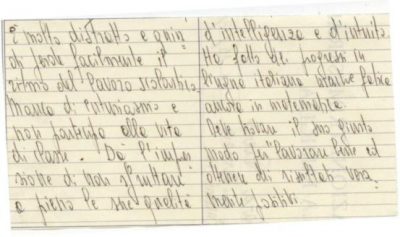 È molto distratto e quin
di perde facilmente il
ritmo del lavoro scolastico.
Manca di entusiasmo e
non partecipa alla vita
di classe. Dà l'impres
sione di non sfruttare
a pieno le sue qualità
d'intelligenza e d'intuito.
Ha fatto dei progressi in
lingua italiana mentre
ancora in matematica.
Deve trovare il suo giusto
modo per lavorare bene ed
ottenere dei risultati vera
mente positivi